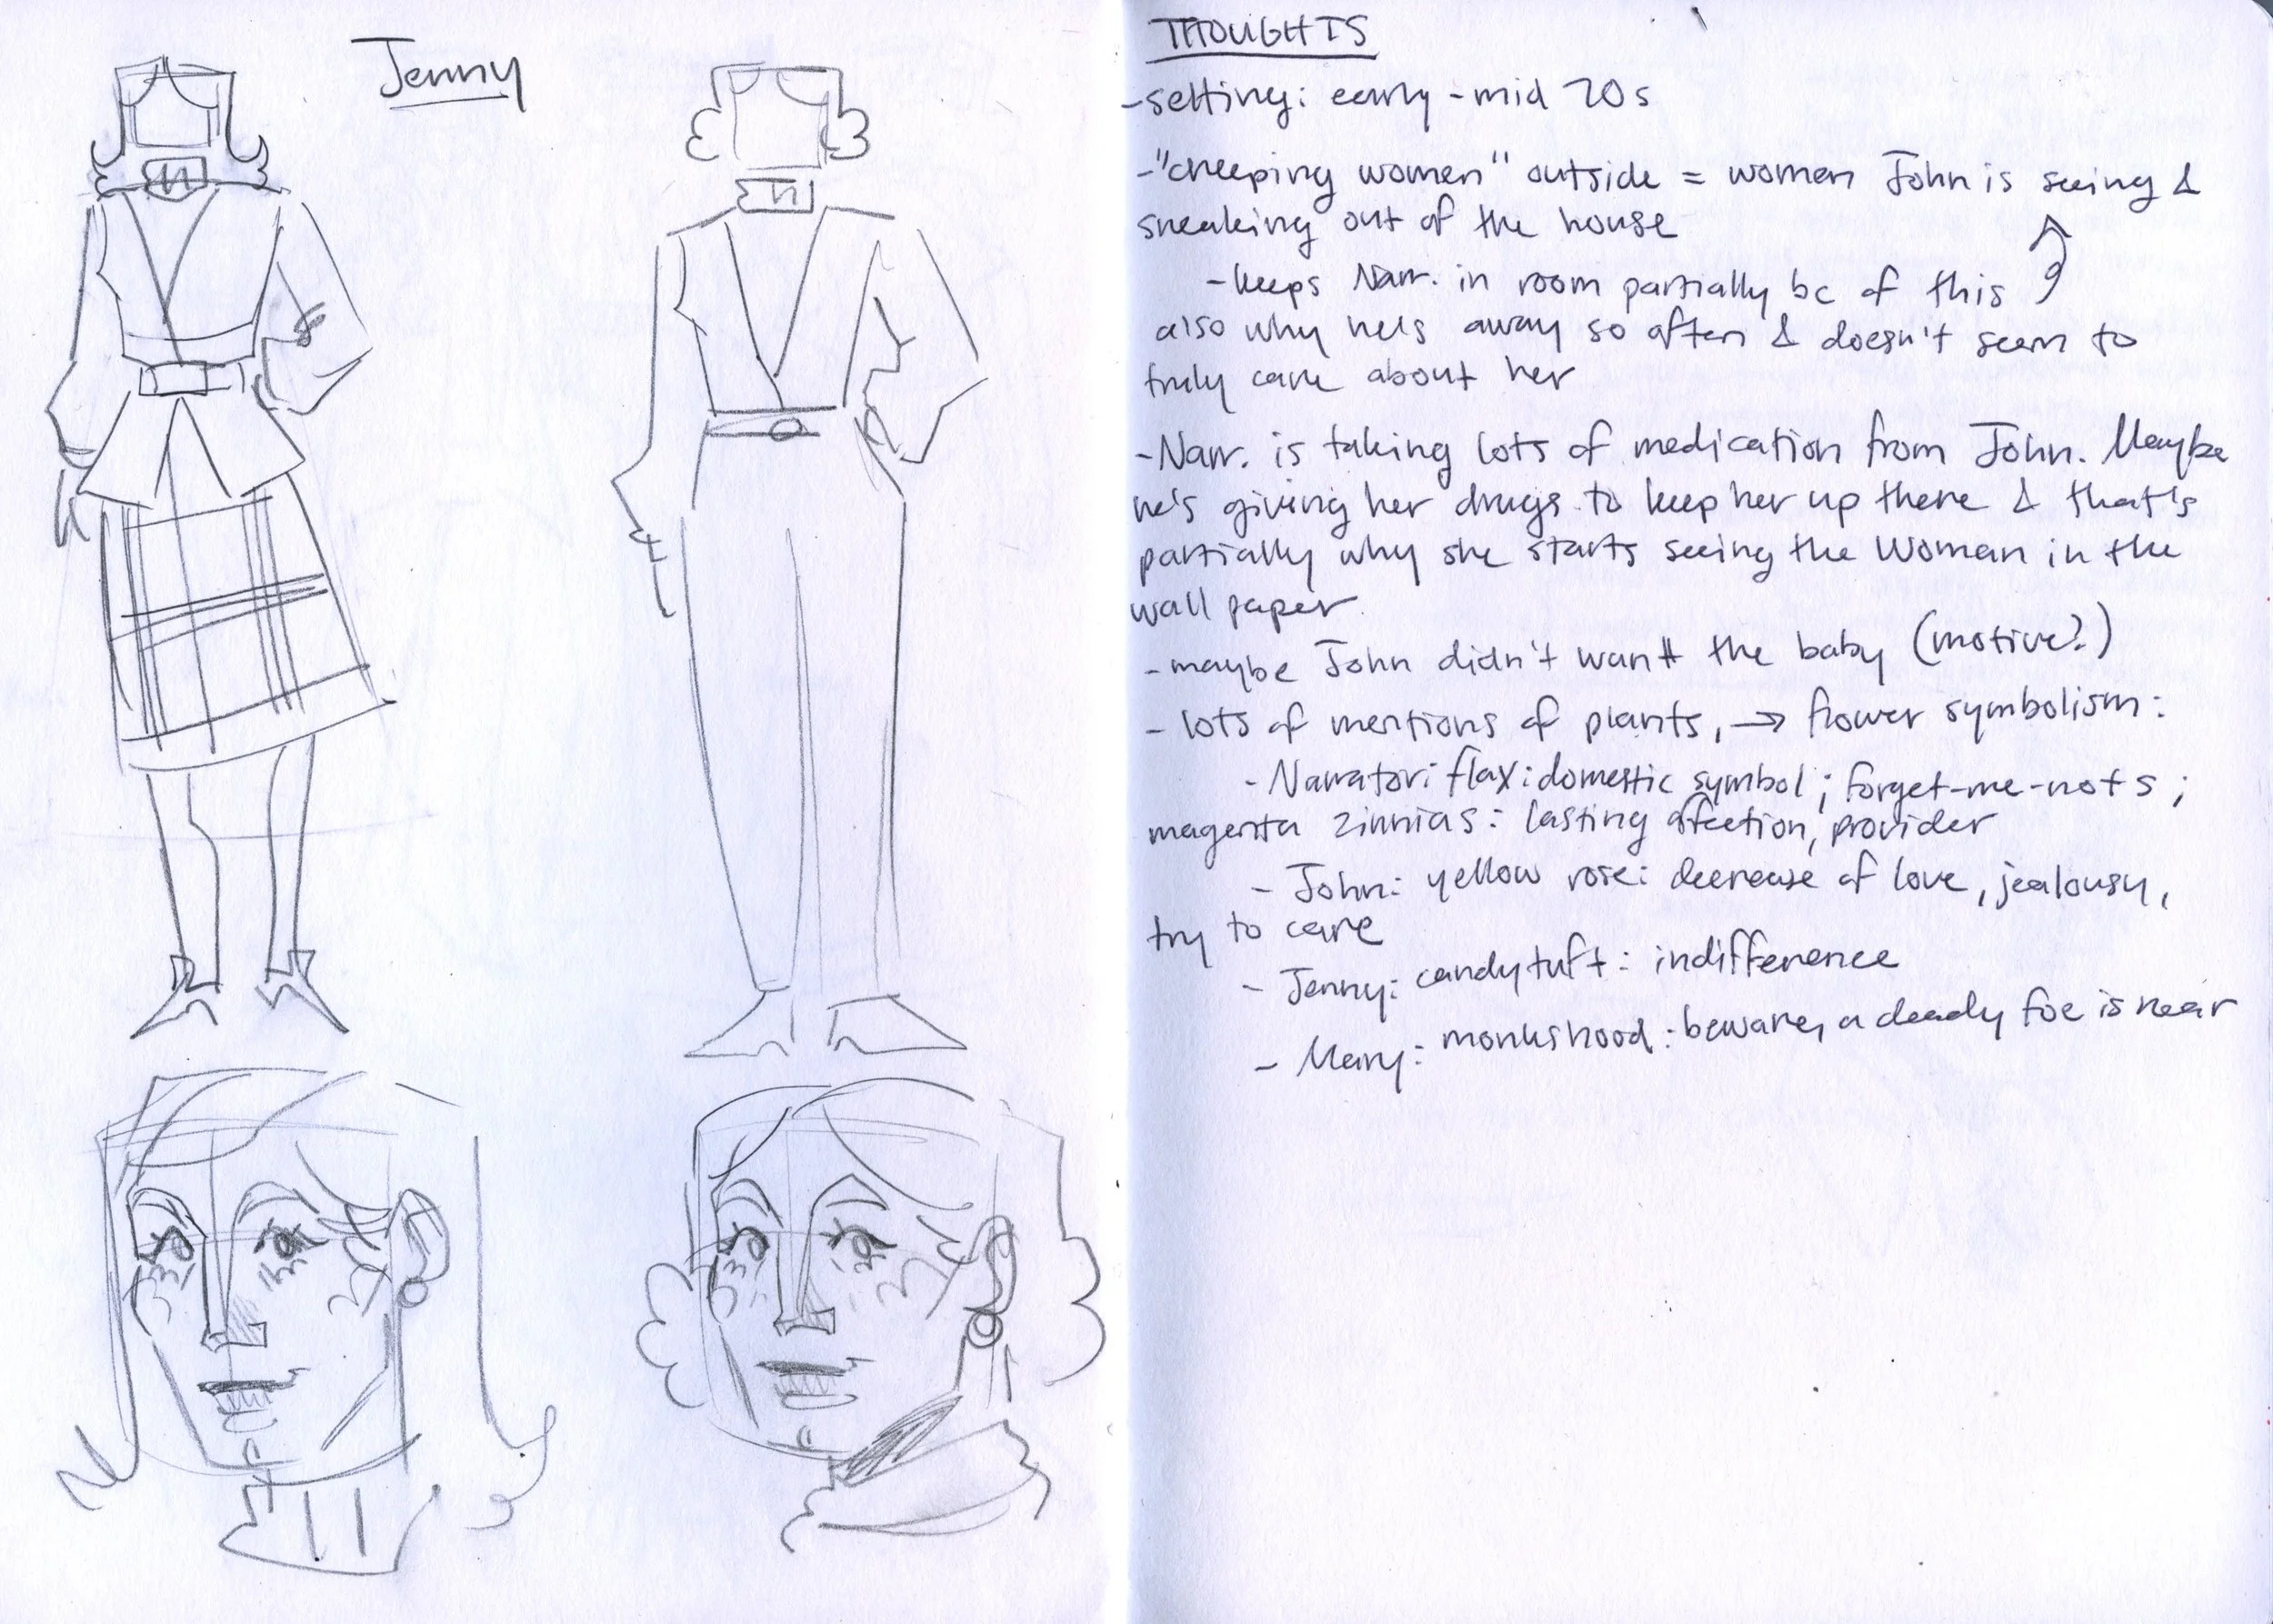 Jenny
THOUGHTS
- setting: early - mid 70s
- "creeping women" outside = women John is seeing &
sneaking out of the house
- keeps Narr. in room partially bc of this
also why he's away so often & doesn't seem to
truly care about her
- Narr. is taking lots of medication from John. Maybe
he's giving her drugs to keep her up there & that's
partially why she starts seeing the Woman in the
wall paper.
- maybe John didn't want the baby (motive?)
- lots of mentions of plants, → flower symbolism:
- Narrator: flax: domestic symbol; forget-me-nots;
magenta zinnias: lasting affection, provider
- John: yellow rose: decrease of love, jealousy,
try to care
- Jenny: candytuft: indifference
- Mary: monkshood: beware, a deadly foe is near